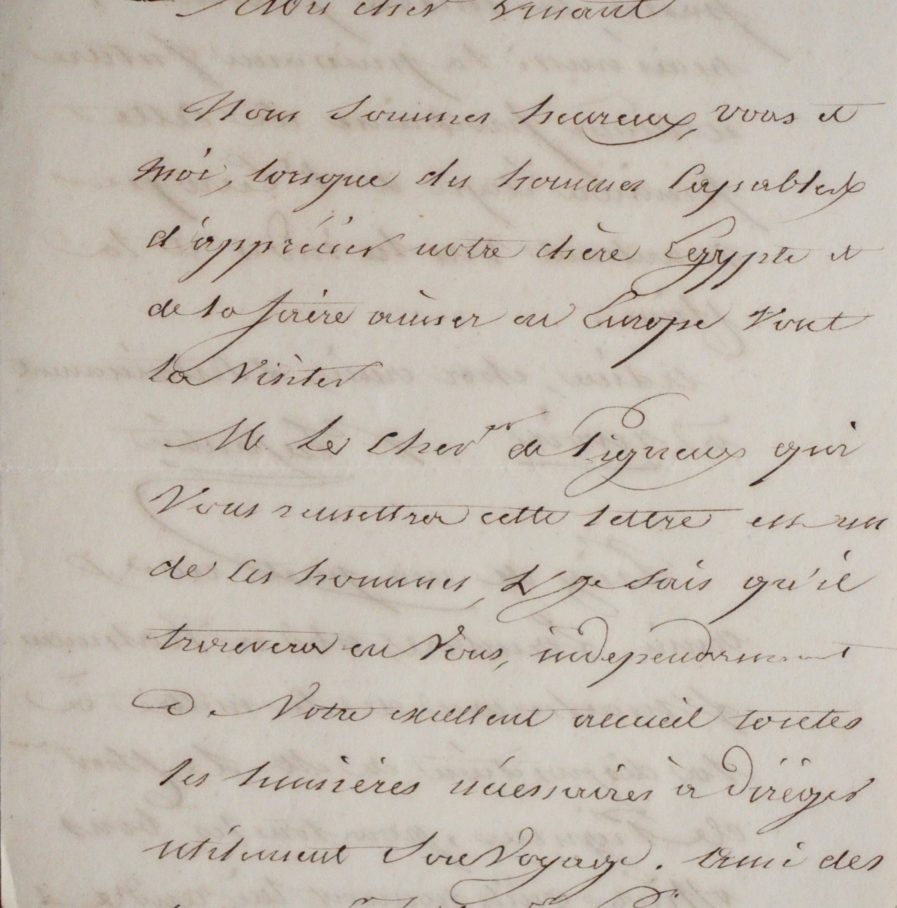 Mon cher Linant
Nous sommes heureux, vous et
moi, lorsque des hommes capables
d'apprécier notre chère Egypte et
de la faire aimer en Europe vont
la visiter
M. le Chever de Pigneux qui
vous remettra cette lettre est un
de ces hommes, & je sais qu'il
trouvera en vous, independamment
de votre excellent accueil toutes
les lumières nécessaires à diriger
utilement son voyage. ami des